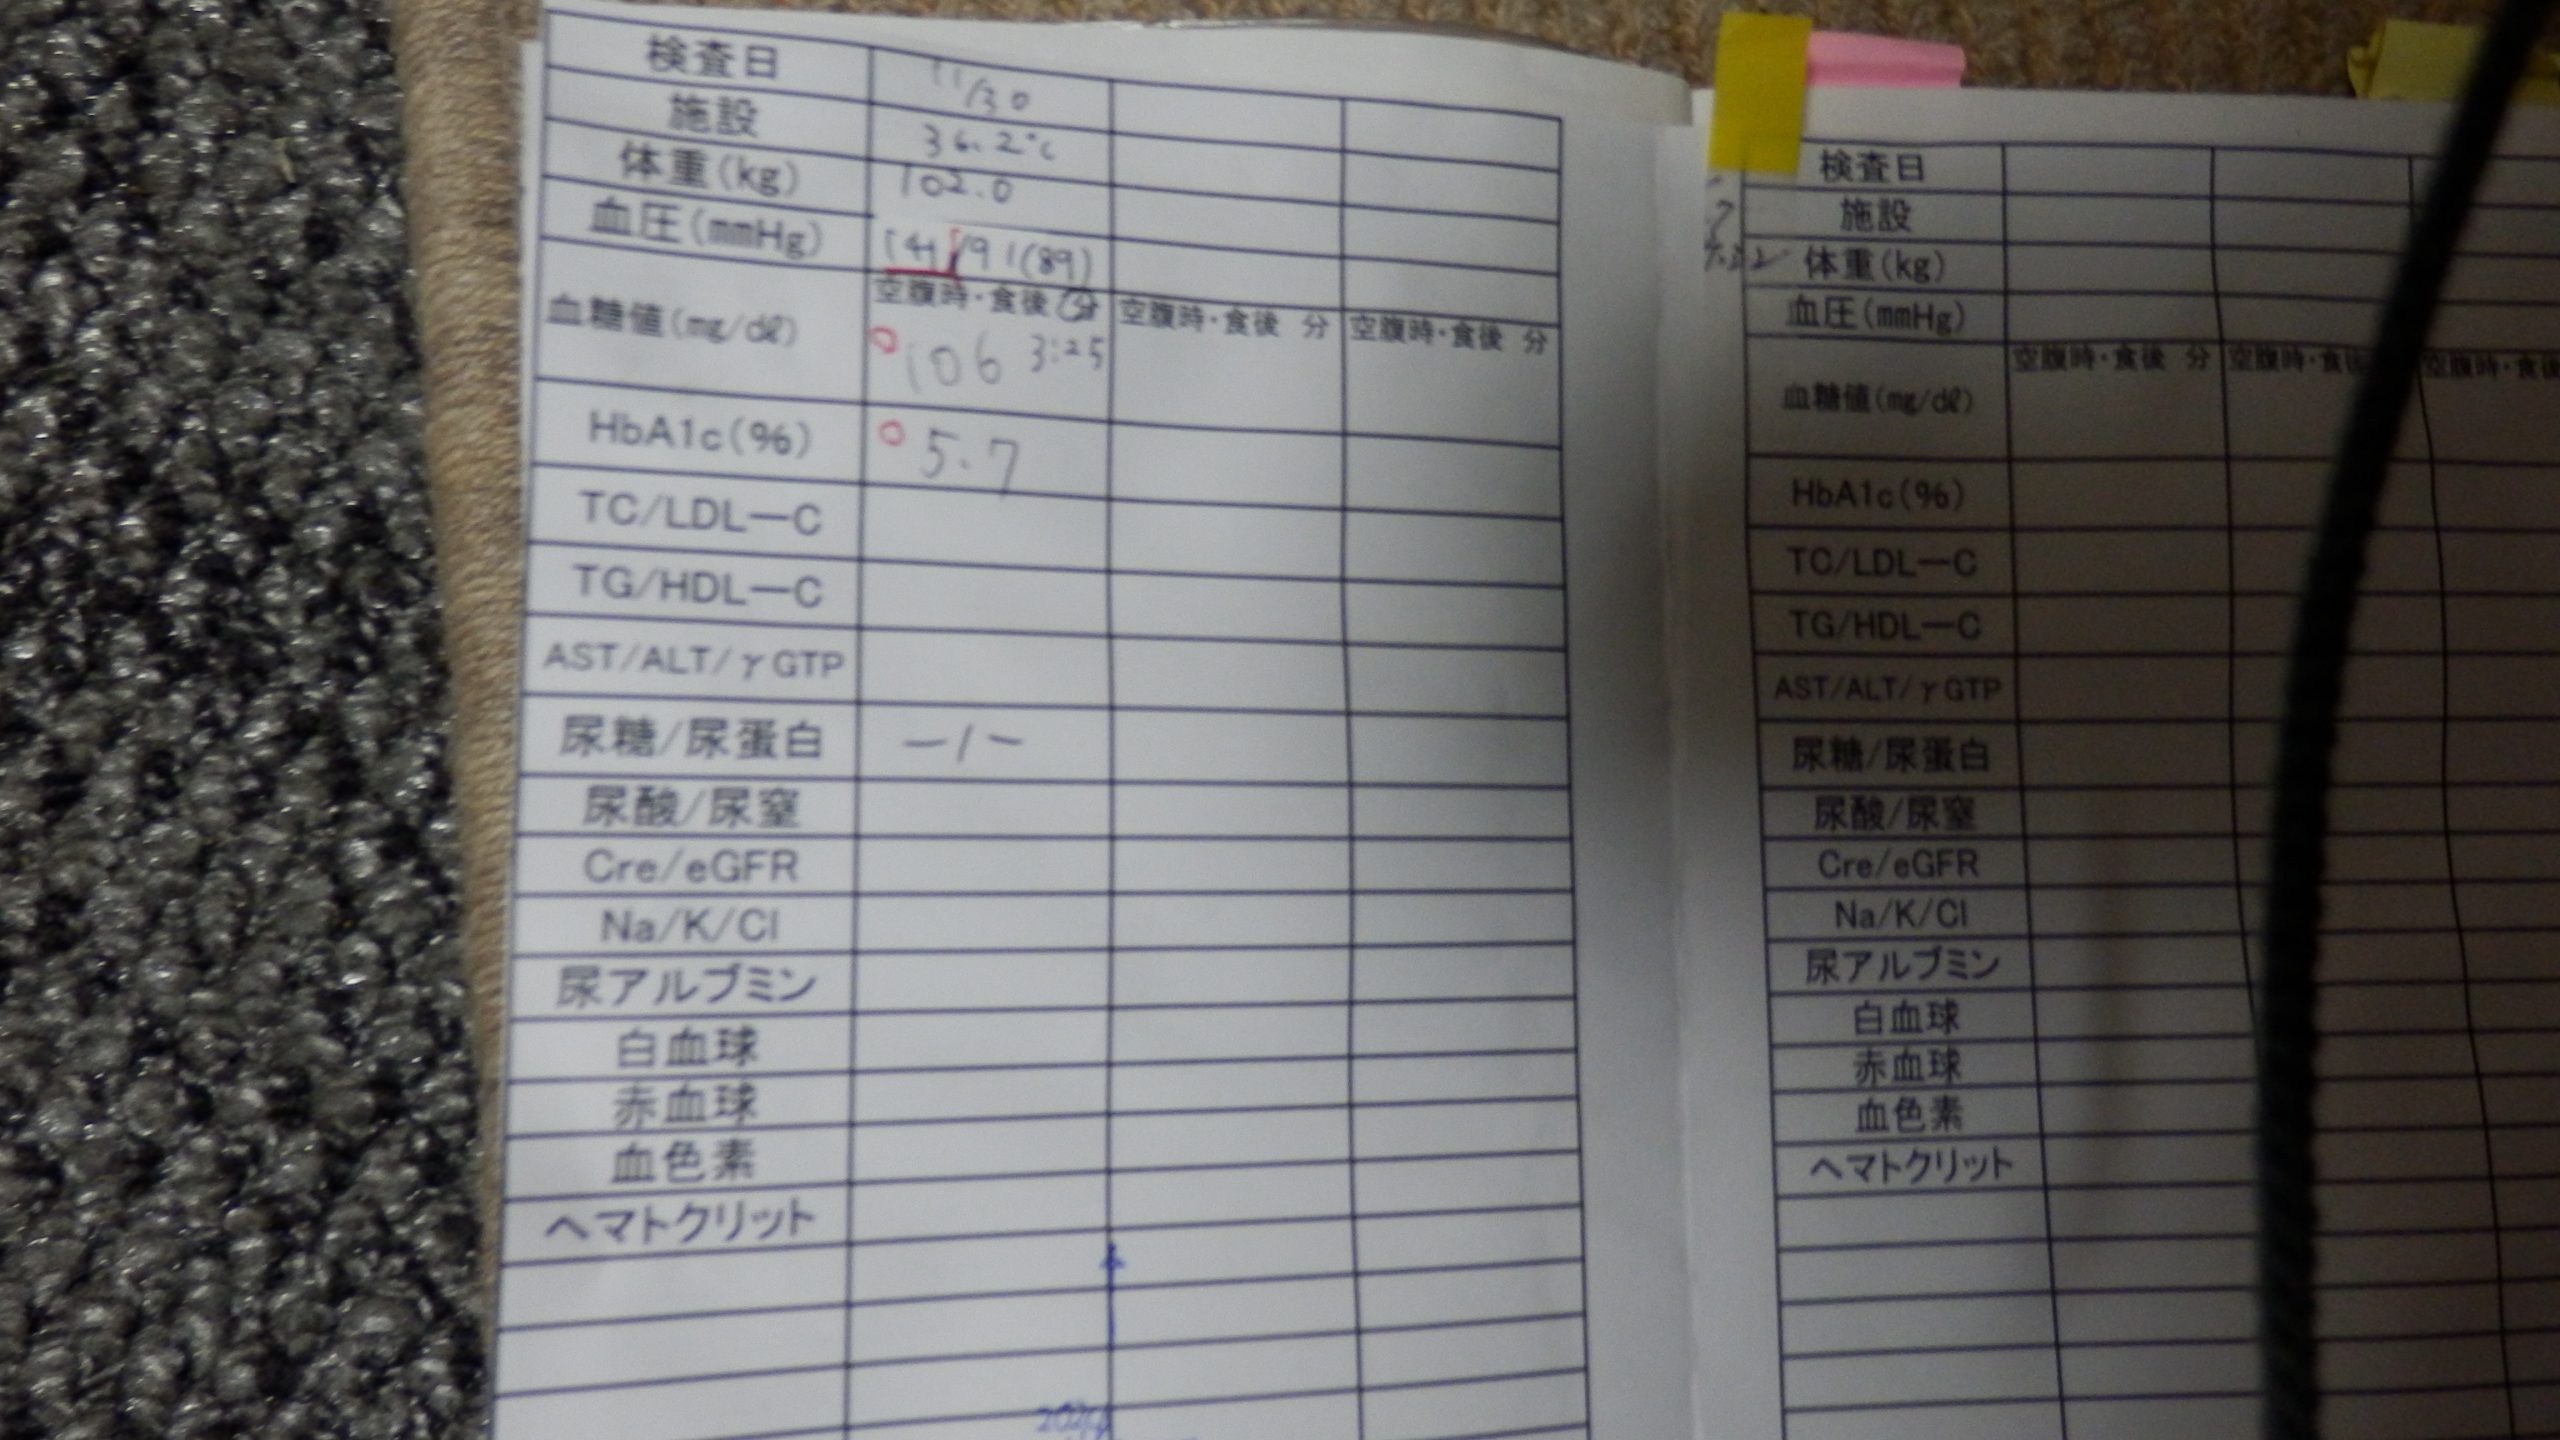 検査日 11/30
施設 36.2℃
体重(kg) 102.0
血圧(mmHg) 141/91(89)
血糖値(mg/dℓ) 空腹時・食後 分 106 3:25 空腹時・食後 分 空腹時・食後 分
HbA1c(%) 5.7
TC/LDL-C
TG/HDL-C
AST/ALT/γGTP
尿糖/尿蛋白 -/-
尿酸/尿窒
Cre/eGFR
Na/K/Cl
尿アルブミン
白血球
赤血球
血色素
ヘマトクリット
検査日
施設
体重(kg)
血圧(mmHg)
血糖値(mg/dℓ) 空腹時・食後 分 空腹時・食後 空腹時・食後
HbA1c(%)
TC/LDL-C
TG/HDL-C
AST/ALT/γGTP
尿糖/尿蛋白
尿酸/尿窒
Cre/eGFR
Na/K/Cl
尿アルブミン
白血球
赤血球
血色素
ヘマトクリット